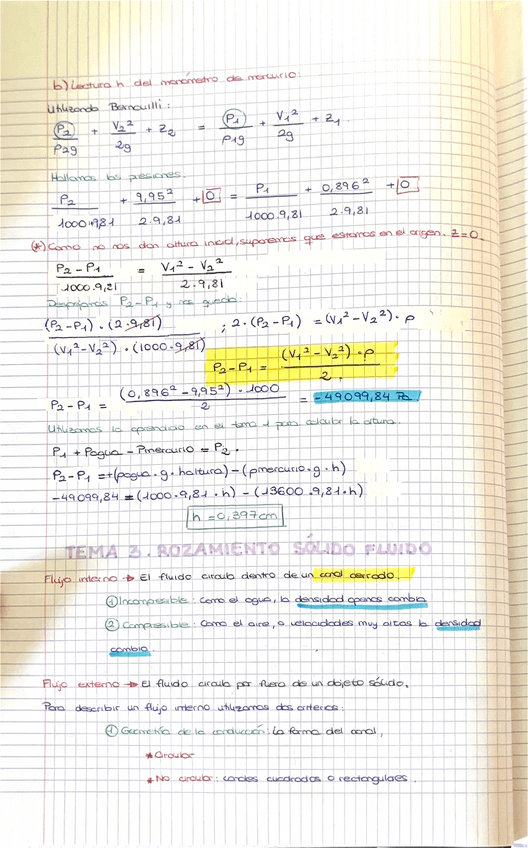 b) Lectura h del manómetro de mercurio:
Utilizando Bernouilli:
P₂/ρ₂g + V₂²/2g + z₂ = P₁/ρ₁g + V₁²/2g + z₁
Hallamos las presiones.
P₂/1000·9,81 + 9,95²/2·9,81 + 0 = P₁/1000·9,81 + 0,896²/2·9,81 + 0
(*) Como no nos dan altura inicial, suponemos que estamos en el origen. z=0.
P₂-P₁/1000·9,81 = V₁²-V₂²/2·9,81
Despejamos P₂-P₁ y nos queda:
(P₂-P₁)·(2·9,81)/(V₁²-V₂²)·(1000·9,81) ; 2·(P₂-P₁) = (V₁²-V₂²)·ρ
P₂-P₁ = (V₁²-V₂²)·ρ/2.
P₂-P₁ = (0,896²-9,95²)·1000/2 = -49099,84 Pa.
Utilizamos la operación en el tema 1 para calcular la altura.
P₁ + Pagua - Pmercurio = P₂.
P₂-P₁ = +(ρagua·g·haltura) - (ρmercurio·g·h)
-49099,84 = (1000·9,81·h) - (13600·9,81·h)
h = 0,397cm
TEMA 3. ROZAMIENTO SÓLIDO FLUIDO
Flujo interno → El fluido circula dentro de un canal cerrado.
① Incompresible: Como el agua, la densidad apenas cambia
② Compresible: Como el aire, a velocidades muy altas la densidad
cambia.
Flujo externo → El fluido circula por fuera de un objeto sólido.
Para describir un flujo interno utilizamos dos criterios:
① Geometría de la conducción: La forma del canal,
* Circular
* No circular: canales cuadrados o rectangulares.